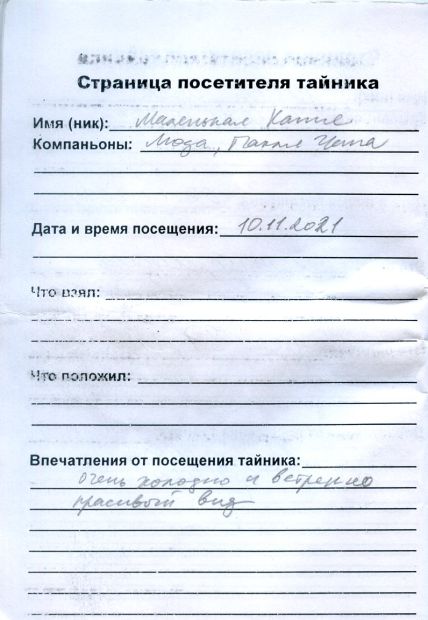 Страница посетителя тайника
Имя (ник): Маленькая
Компаньоны:
Дата и время посещения: 10.11.2021
Что взял:
Что положил:
Впечатления от посещения тайника:
очень холодно и ветренно
красивый вид